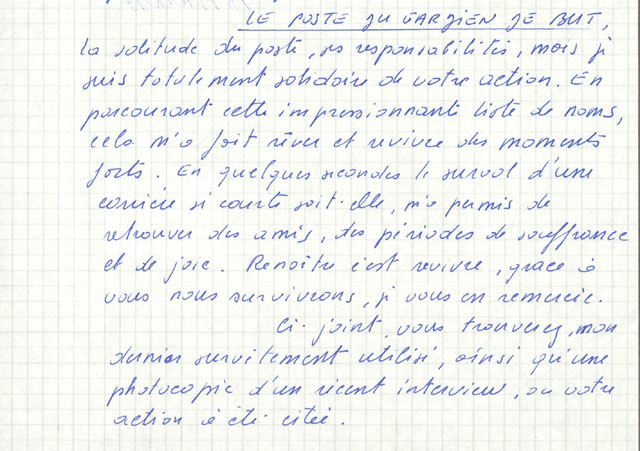 LE POSTE DU GARDIEN DE BUT,
la solitude du poste, ses responsabilités, mais je
suis totalement solidaire de votre action. En
parcourant cette impressionnante liste de noms,
cela m'a fait rêver et revivre des moments
forts. En quelques secondes le survol d'une
carrière si courte soit-elle, m'a permis de
retrouver des amis, des périodes de souffrance
et de joie. Renaître c'est revivre, grace à
vous nous survivrons, je vous en remercie.
Ci-joint, vous trouverez, mon
dernier survêtement utilisé, ainsi qu'une
photocopie d'un récent interview, ou votre
action à été citée.